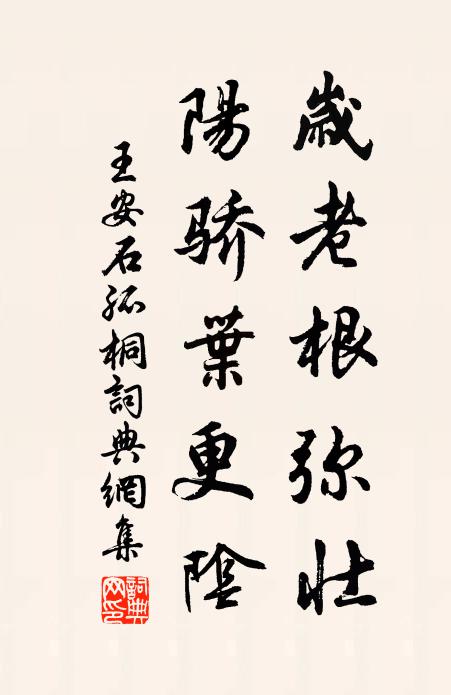 歲老根弥壮
陽骄葉更陰
王安石孤桐詞典網集
詞典網印